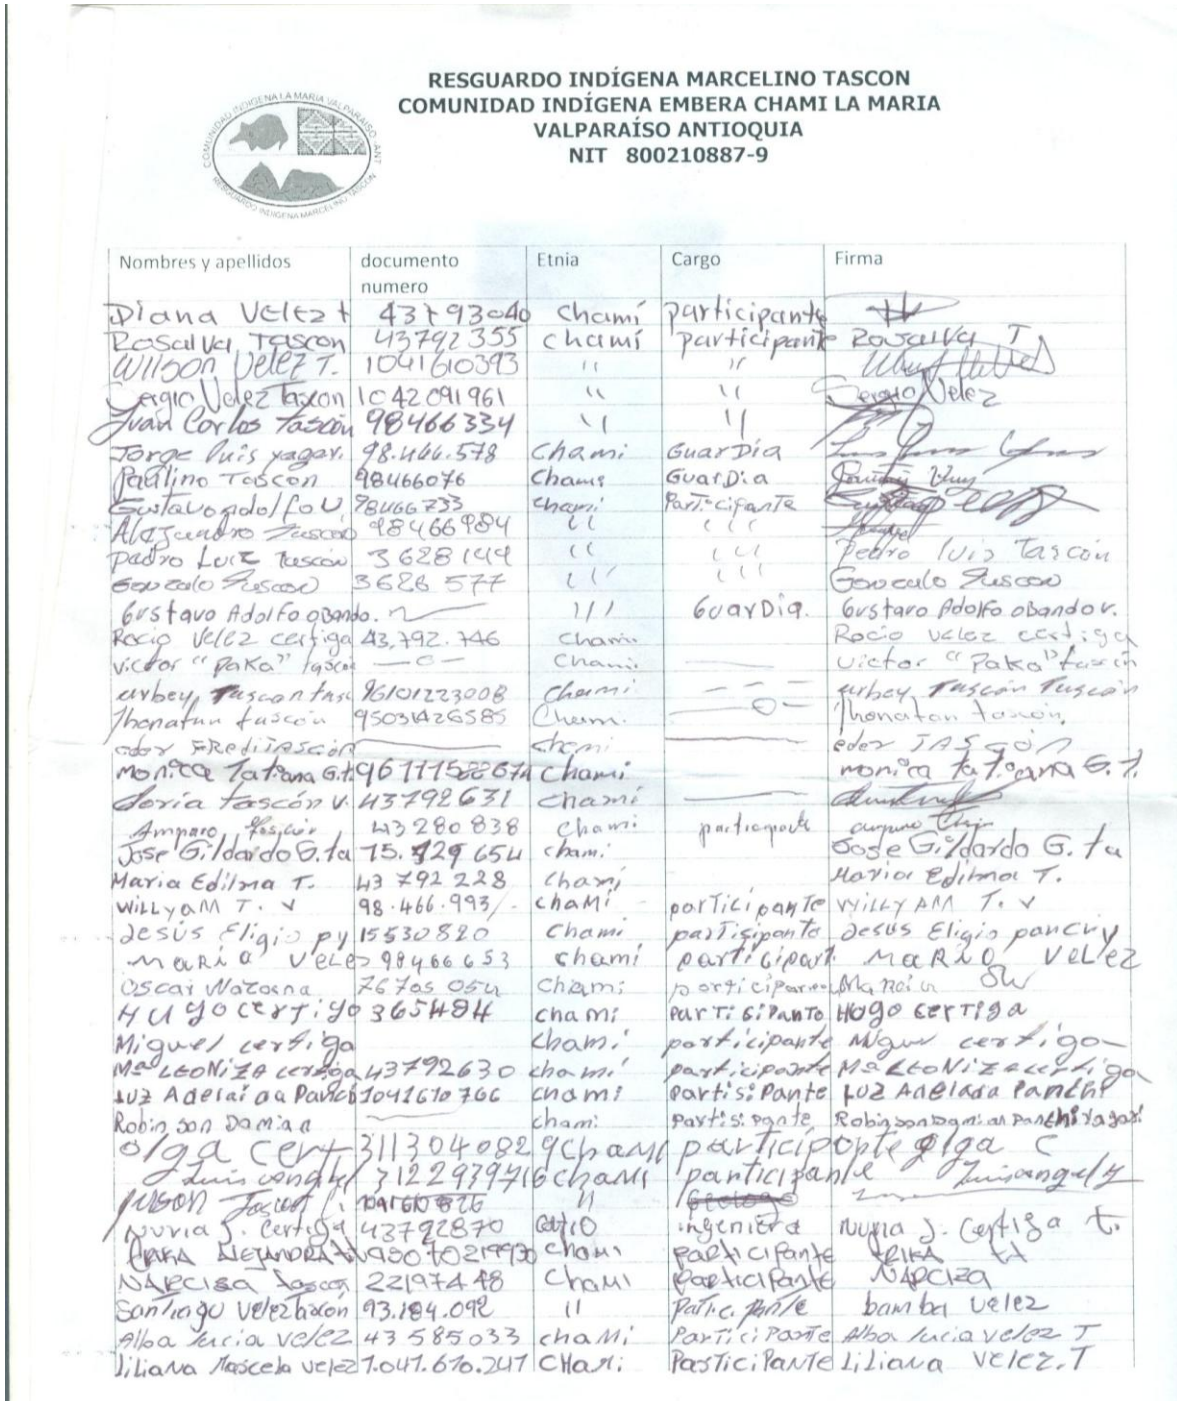 RESGUARDO INDÍGENA MARCELINO TASCON
COMUNIDAD INDÍGENA EMBERA CHAMI LA MARIA
VALPARAÍSO ANTIOQUIA
NIT 800210887-9
COMUNIDAD INDIGENA LA MARIA VALPARAISO - ANT
RESGUARDO INDIGENA MARCELINO TASCON
Nombres y apellidos documento numero Etnia Cargo Firma
Diana Velez t 43793040 chamí participante
Rosalva Tascon 43792355 chamí participante Rosalva T
Wilson Velez T. 1041610393 " "
Sergio Velez Tascon 1042091961 " " Sergio Velez
Juan Carlos Tascón 98466334 " "
Jorge luis yagar. 98.466.578 chami GuarDia
Paulino Tascon 98466076 Chami GuarDia
Gustavo adolfo V. 98466733 chami Participante
Alejandro Tascon 98466984 " "
Pedro Luiz Tascon 3628144 " " Pedro luis Tascón
Gonzalo Tascon 3628577 " " Gonzalo Tascon
Gustavo Adolfo obando. " GuarDia. Gustavo Adolfo obando v.
Rocio Velez certiga 43.792.746 chami Rocio velez certiga
victor "paka" tascon — o — Chami victor "Paka" tascón
urbey Tascon tasc 96101223008 Chami urbey Tascón Tascón
Jhonatan tascón 95031426585 Chami. Jhonatan tascón.
eder FRedi TAScón chami eder TAScón
monica Tatiana G.t. chami monica tatiana G.t.
Tascón v. 43792631 chamí
Amparo Tascón 43280838 chami participante
Jose Gildardo G. ta 654 chami Jose Gildardo G. ta
Maria Edilma T. 43792228 chami Maria Edilma T.
WiLLyAM T. V 98.466.993 chaMi parTicipanTe WiLLyAM T. V
Jesús Eligio py 15530820 chami parTisipanto Jesús Eligio
MaRio VeLez 98466653 chami participant MaRio VeLez
Oscar 76705054 Chami participante
Hugo certigo 365484 chami parTisipanTo Hugo cerTiga
Miguel certiga chamí participante certiga
Mª LeoNiza certiga 43792630 chamí participante Mª LeoNiza certiga
LUZ Adelaida Panchi 1041610766 chami Partisipante
Robinson Damian chami Partisipante Robinson Damian Panchi yagari
olga cert 3113040829 chami participante olga C
3122939716 chami participante Luisangel y
Tascon
Nuria J. Certiga 43792870 ingeniera Nuria J. Certiga t.
ERIKA ALEJANDRA chami participante ERIKA
NARCISA Tascon 22197448 ChaMi participante NARCIZA
Santiago Velez tascón 93.184.092 " Participante bamba velez
Alba lucia velez 43585033 chaMi ParTiciPante Alba lucia velez T
LiLiana Mascela velez 1.041.610.241 CHaMi ParTiciPanTe LiLiana Velez.T